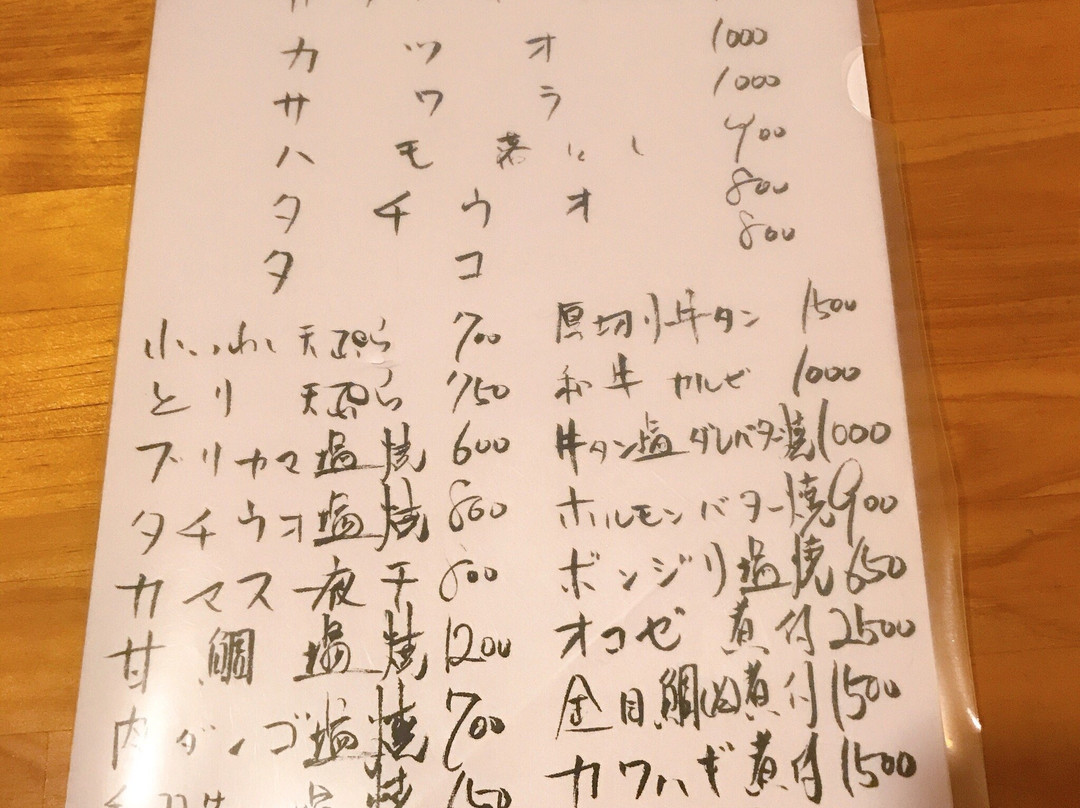 カツオ 1000
サワラ 1000
ハモ落とし 900
タチウオ 800
タコ 800
小いわし天ぷら 700
とり天ぷら 750
ブリカマ塩焼 600
タチウオ塩焼 800
カマス夜干 800
甘鯛塩焼 1200
肉ダンゴ塩焼 700
塩焼
厚切り牛タン 1500
和牛カルビ 1000
牛タン塩ダレバター焼 1000
ホルモンバター焼 900
ボンジリ塩焼 650
オコゼ煮付 2500
金目鯛煮付 1500
カワハギ煮付 1500